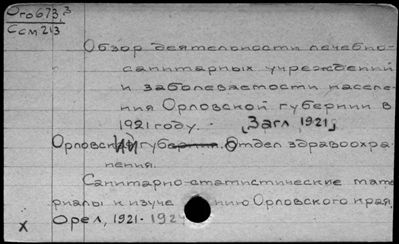 Ого673.3
Ссм213
Обзор деятельности лечебно-
санитарных учреждений
и заболеваемости населе-
ния Орловской губернии в
1921 году. [Загл. 1921]
Орловский губернии. Отдел здравоохра-
нения.
Санитарно-статистические мате-
риалы к изуче нию Орловского края,
Орел, 1921-192
X